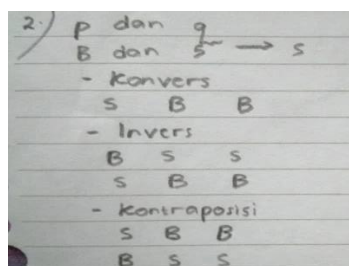 2. p dan q
B dan S → S
- Konvers
S B B
- Invers
B S S
S B B
- Kontraposisi
S B B
B S S